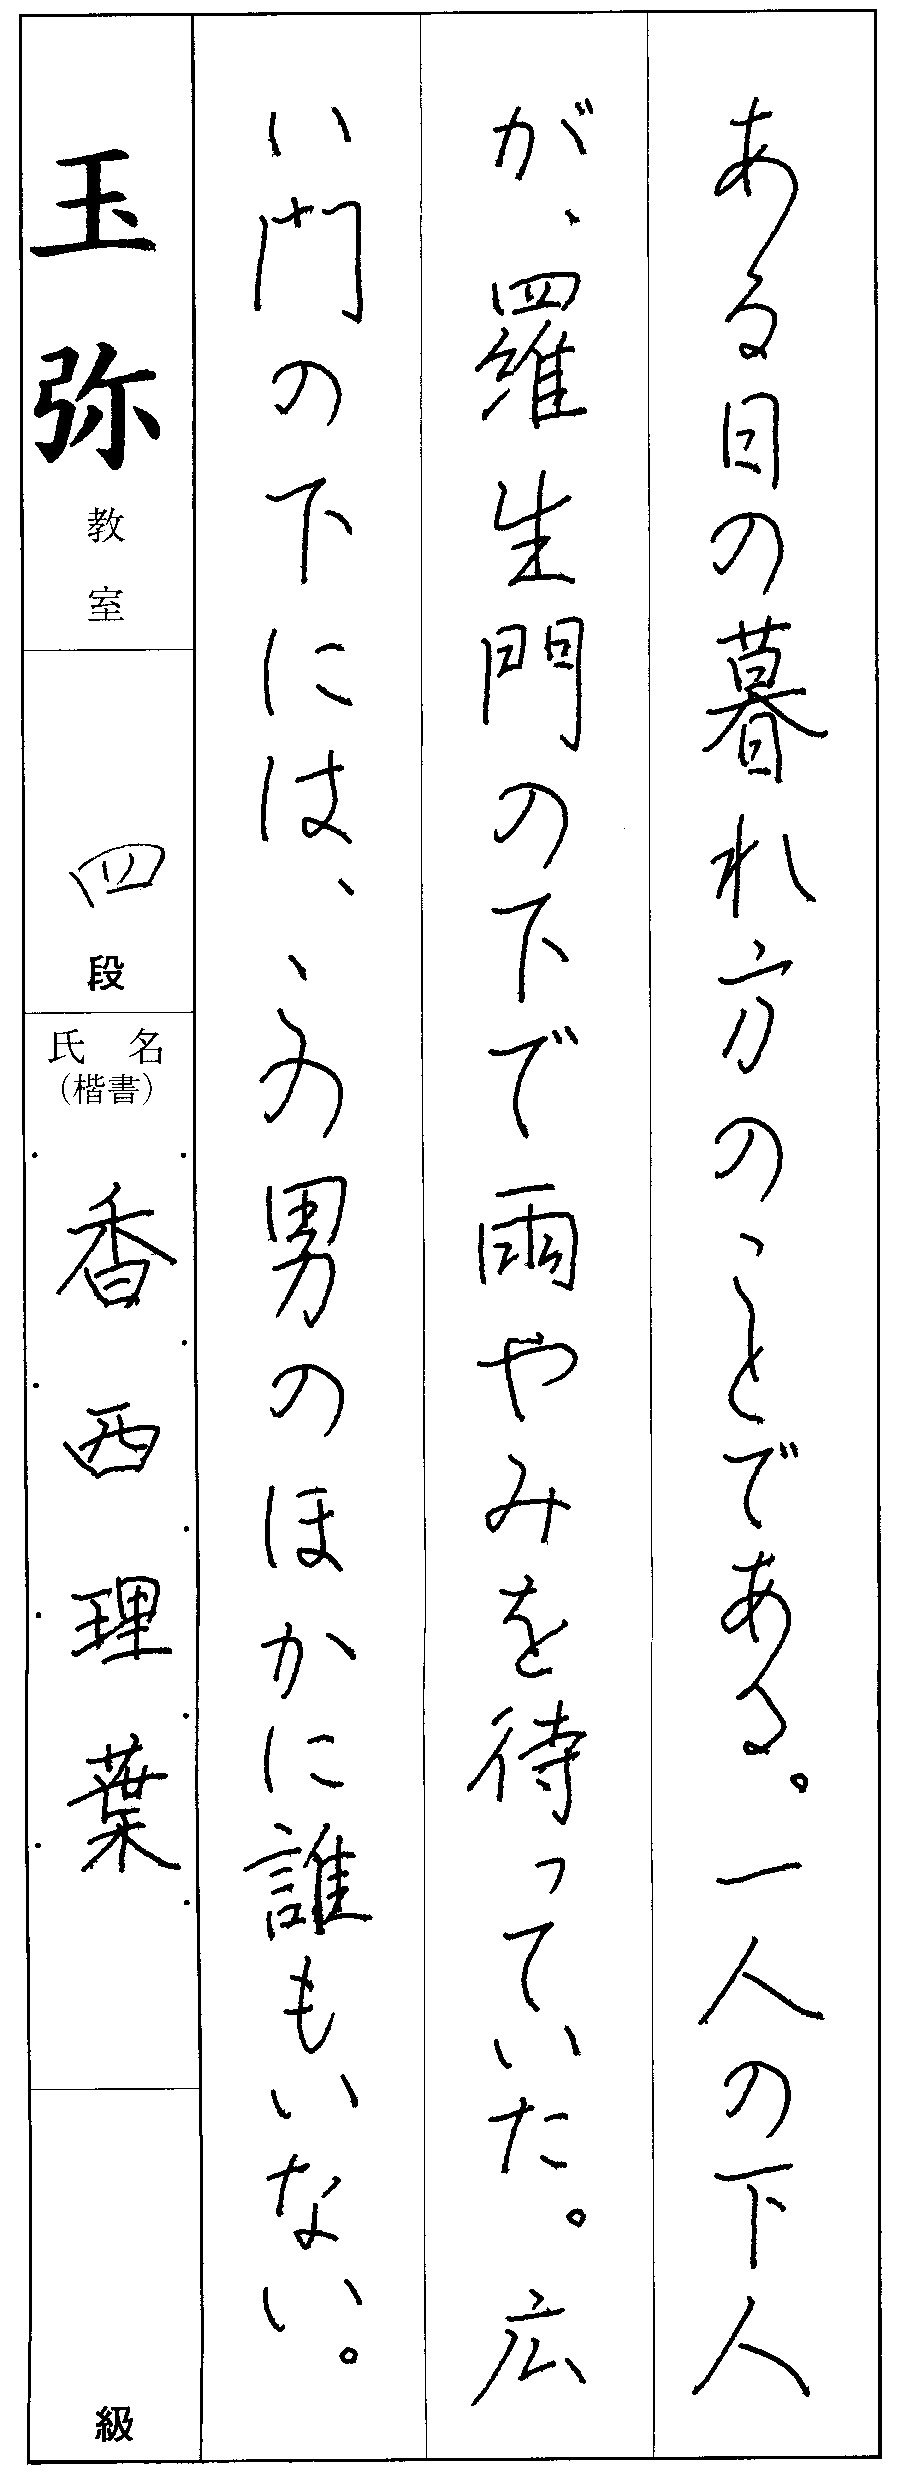 ある日の暮れ方のことである。一人の下人
が、羅生門の下で雨やみを待っていた。広
い門の下には、この男のほかに誰もいない。
玉弥教室
四段
氏名
(楷書)
香西理葉
級